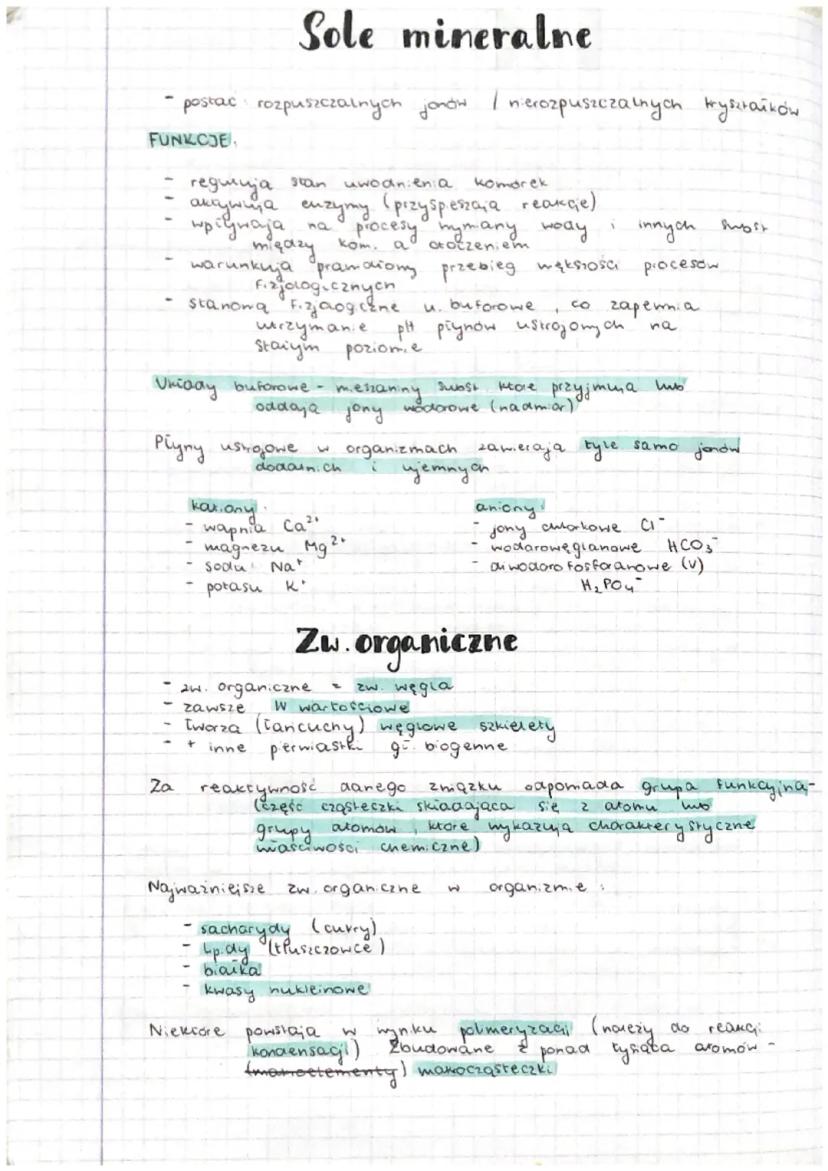 Sole mineralne
- postać rozpuszczalnych jonów / nierozpuszczalnych kryształków
FUNKCJE:
- regulują stan uwodnienia komórek
- aktywują enzymy (przyspieszają reakcje)
- wpływają na procesy wymiany wody i innych subst.
między kom. a otoczeniem
- warunkują prawidłowy przebieg większości procesów
fizjologicznych
- stanowią fizjologiczne u. buforowe, co zapewnia
utrzymanie pH płynów ustrojowych na
stałym poziomie
Układy buforowe - mieszaniny subst. które przyjmują lub
oddają jony wodorowe (nadmiar)
Płyny ustrojowe w organizmach zawierają tyle samo jonów
dodatnich i ujemnych
kationy:
- wapnia Ca²⁺
- magnezu Mg²⁺
- sodu Na⁺
- potasu K⁺
aniony:
- jony chlorkowe Cl⁻
- wodorowęglanowe HCO₃⁻
- diwodorofosforanowe (V)
H₂PO₄⁻
Zw. organiczne
- zw. organiczne = zw. węgla
- zawsze IV wartościowe
- tworzą (łańcuchy) węglowe szkielety
- + inne pierwiastki gł. biogenne
Za reaktywność danego związku odpowiada grupa funkcyjna -
(część cząsteczki składająca się z atomu lub
grupy atomów, które wykazują charakterystyczne
właściwości chemiczne)
Najważniejsze zw. organiczne w organizmie:
- sacharydy (cukry)
- lipidy (tłuszczowce)
- białka
- kwasy nukleinowe
Niektóre powstają w wyniku polimeryzacji (należy do reakcji
kondensacji) Zbudowane z ponad tysiąca atomów -
(makroelementy) makocząsteczki